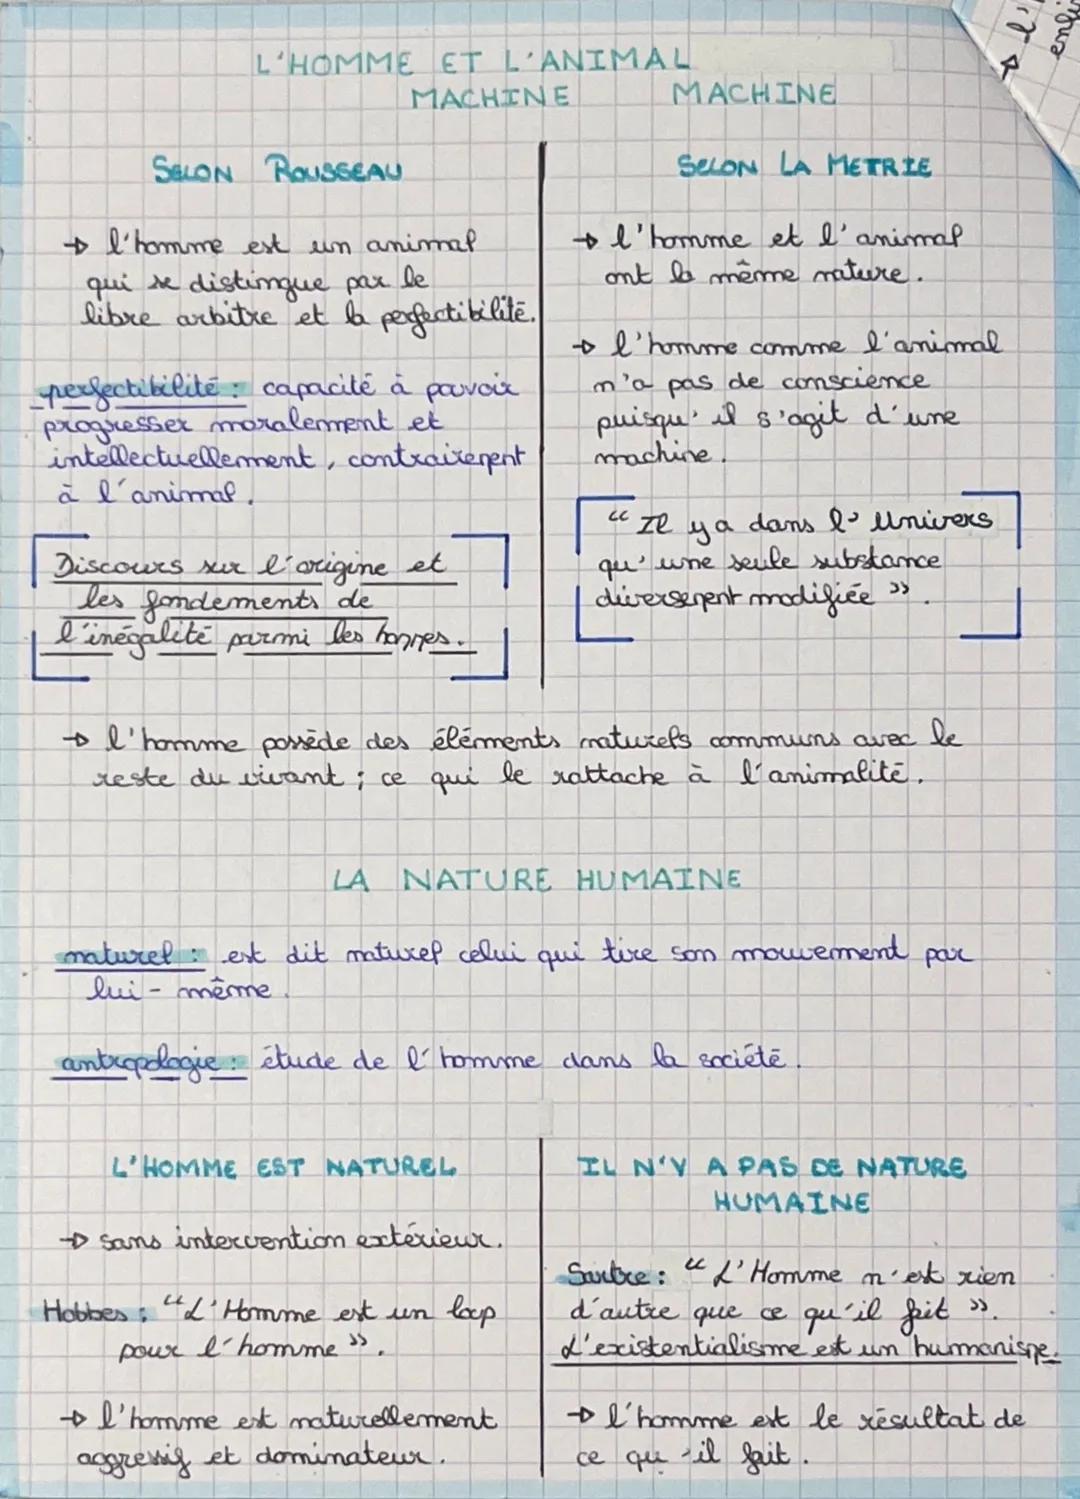 L'HOMME ET L'ANIMAL
MACHINE MACHINE
SELON ROUSSEAU
→ l'homme est un animal
qui se distingue par le
libre arbitre et la perfectibilité.
perfectibilité : capacité à pouvoir
progresser moralement et
intellectuellement, contrairement
à l'animal.
Discours sur l'origine et
les fondements de
l'inégalité parmi les hommes.
SELON LA METRIE
→ l'homme et l'animal
ont la même nature.
→ l'homme comme l'animal
n'a pas de conscience
puisqu'il s'agit d'une
machine.
"Il y a dans l'Univers
qu'une seule substance
diversement modifiée".
→ l'homme possède des éléments naturels communs avec le
reste du vivant ; ce qui le rattache à l'animalité.
LA NATURE HUMAINE
naturel : est dit naturel celui qui tire son mouvement par
lui-même.
antropologie : étude de l'homme dans la société.
L'HOMME EST NATUREL
→ sans intervention extérieur.
Hobbes : "L'Homme est un loup
pour l'homme".
→ l'homme est naturellement
aggressif et dominateur.
IL N'Y A PAS DE NATURE
HUMAINE
Sartre : "L'Homme n'est rien
d'autre que ce qu'il fait".
L'existentialisme est un humanisme.
→ l'homme est le résultat de
ce qu'il fait.